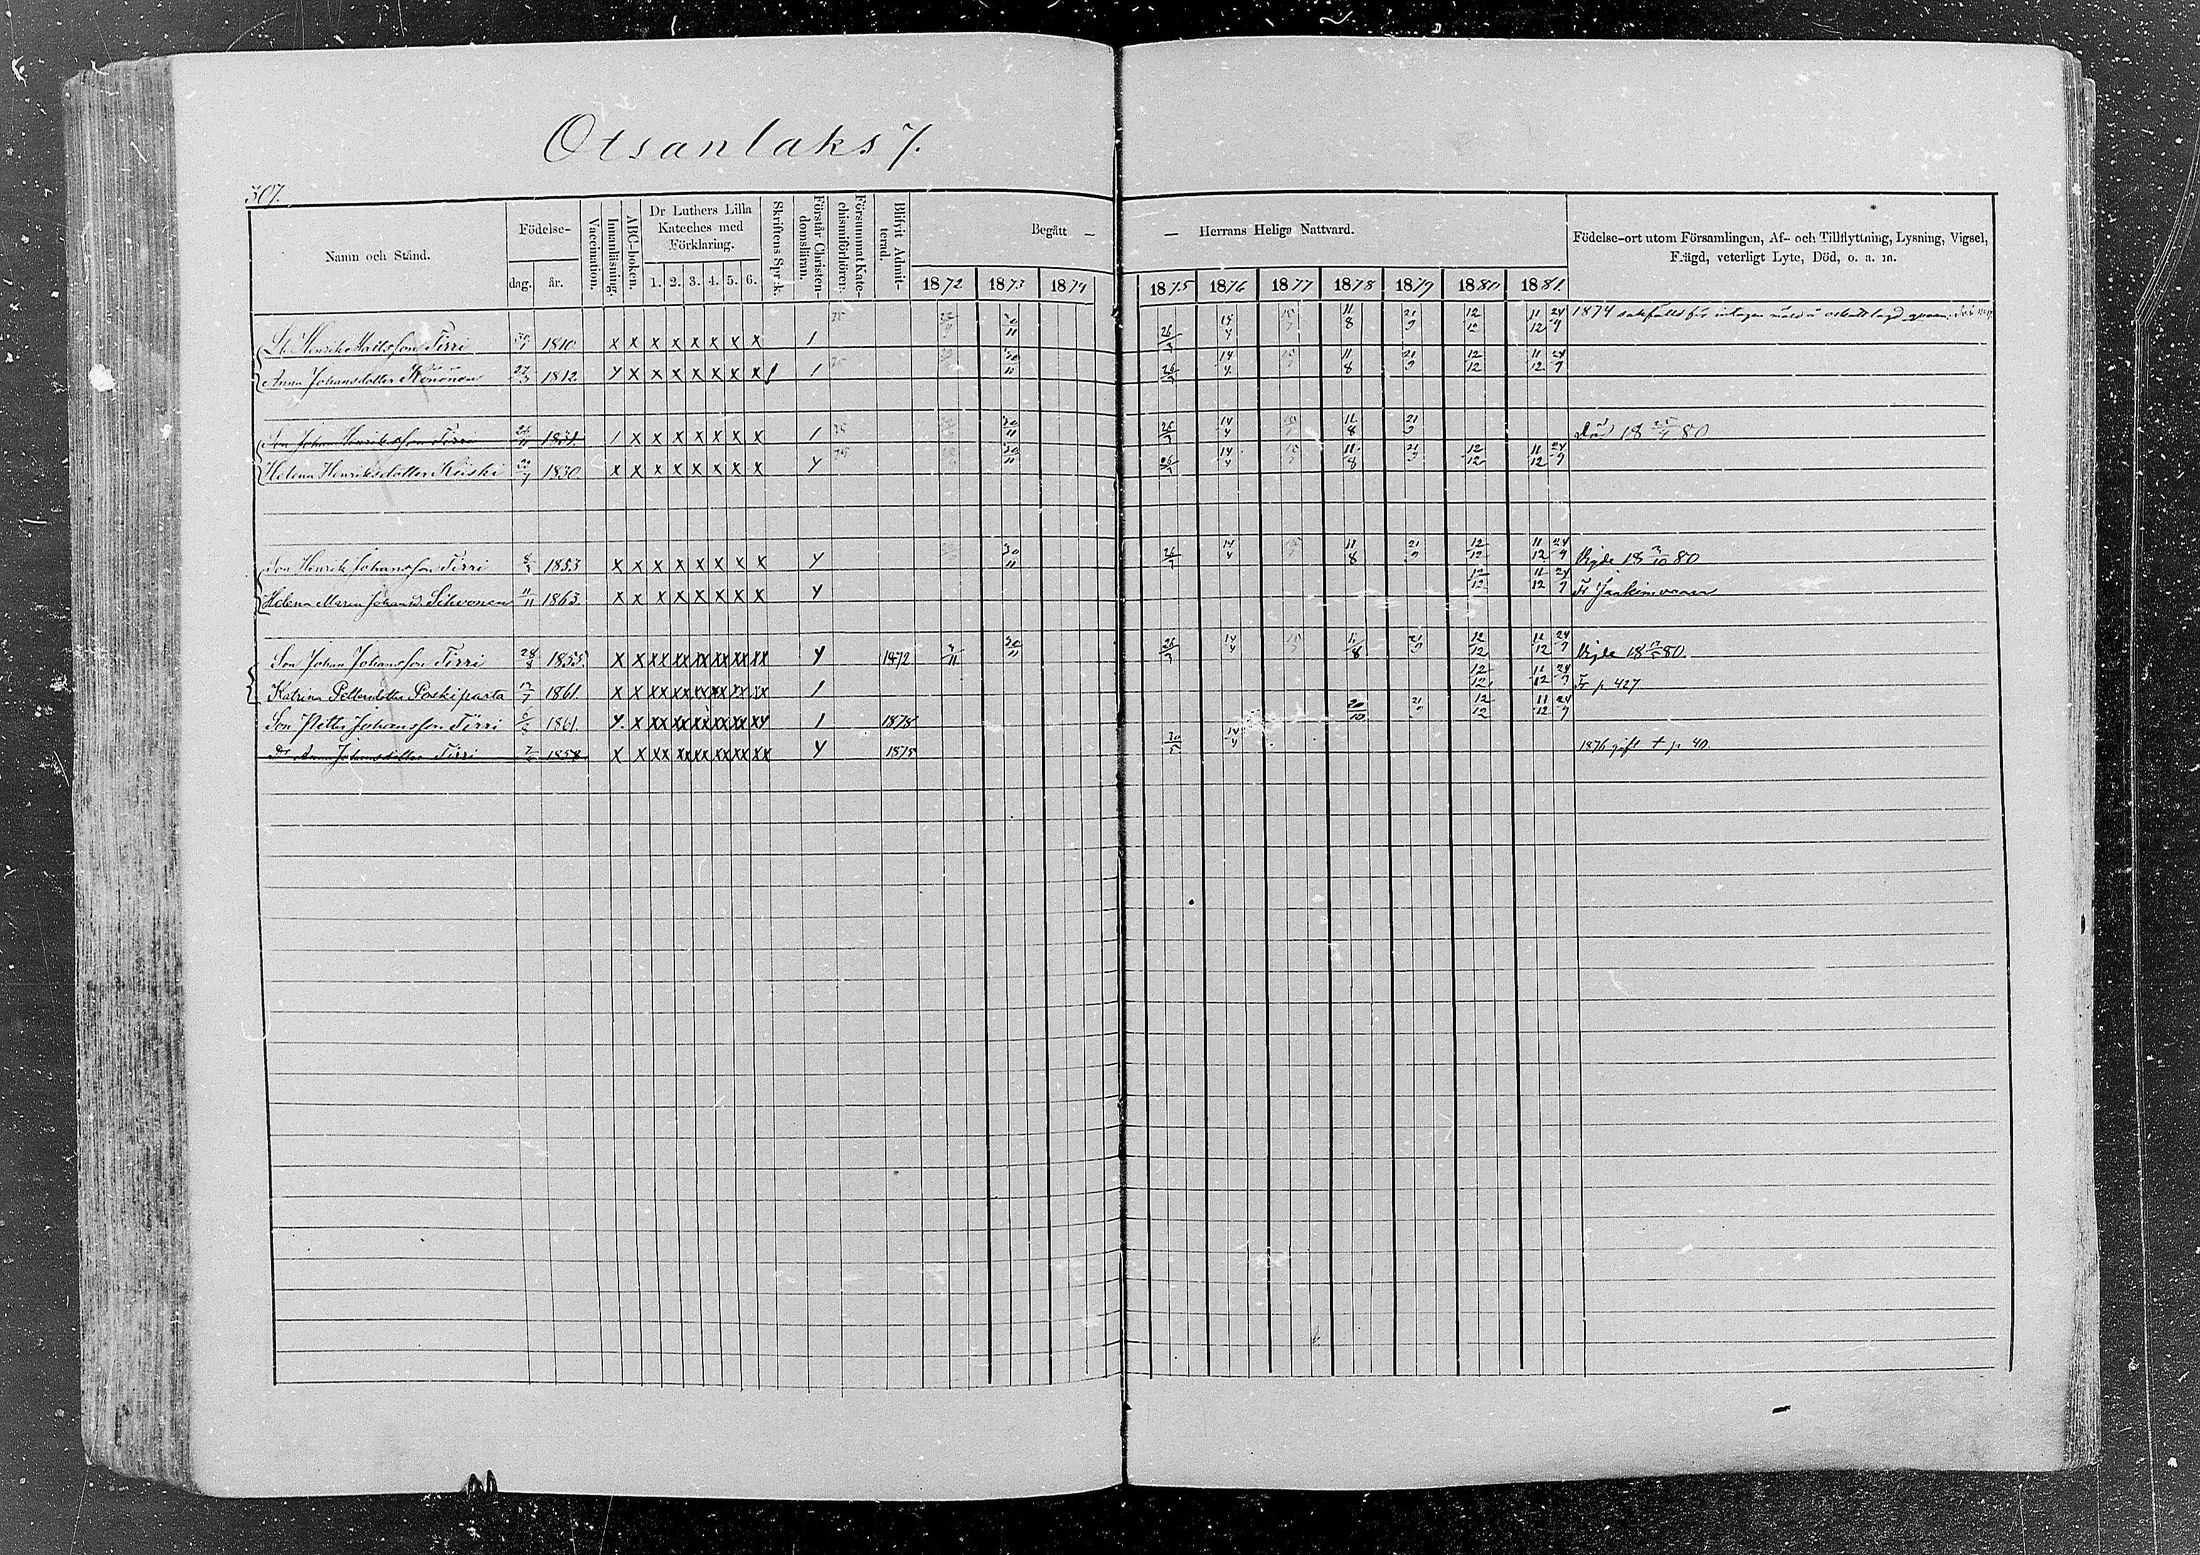 Otsanlaks 7.
307.
Namn och Stånd. Födelse- Vaccination. Innanläsning. ABC-boken. Dr Luthers Lilla Kateches med Förklaring. Skriftens Språk. Förstår Christendomsläran. Försummat Katechismiförhören. Blifvit Admitterad. Begått — — Herrans Heliga Nattvard. Födelse-ort utom Församlingen, Af- och Tillflyttning, Lysning, Vigsel,
Frägd, veterligt Lyte, Död, o. a. m.
dag. år. 1. 2. 3. 4. 5. 6. 1872 1873 1874 1875 1876 1877 1878 1879 1880 1881
Henrik Mattsson Tirri 1810 x x x x x x x x 1 30/11 26/3 14/4 11/8 21/9 12/12 11/12 24/9 1874
Anna Johansdotter Könönen 27/3 1812 y x x x x x x x 1 30/11 26/3 14/4 11/8 21/9 12/12 11/12 24/9
Son Johan Henriksson Tirri 26/11 1831 1 x x x x x x x 1 30/11 26/3 14/4 11/8 21/9 Död 18 80
Helena Henriksdotter 1830. x x x x x x x x y 30/11 26/3 14/4 11/8 21/9 12/12 11/12 24/9
Son Henrik Johansson Tirri 1853 x x x x x x x x y 30/11 26/3 14/4 11/8 21/9 12/12 11/12 24/9 Vigde 18 80
Helena Maria Johansd. Sihvonen 11/11 1863. x x x x x x x x y 12/12 11/12 24/9 Fr
Son Johan Johansson Tirri 28/3 1855 x x xx xx xx xx xx xx y 1872 3/11 30/11 26/3 14/4 11/8 21/9 12/12 11/12 24/9 Vigde 18 80
Katrina Pettersdotter Poskiparta 1861 x x xx xx xx xx xx xx 1 12/12 11/12 24/9 Fr p. 427
Son Petter Johansson Tirri 1861. y x xx xx xx xx xx xy 1 1878 20/10 21/9 12/12 11/12 24/9
Dr Anna Johansdotter Tirri 1858 x x xx xx xx xx xx xx y 1875 30/5 14/4 1876 gift + p 40.